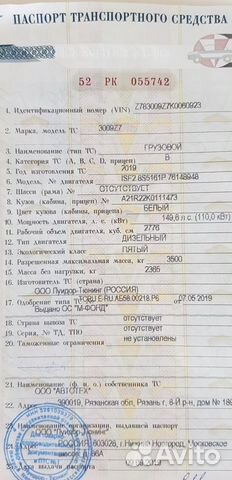 ПАСПОРТ ТРАНСПОРТНОГО СРЕДСТВА
52 РК 055742
1. Идентификационный номер (VIN) Z783009Z7K0060923
2. Марка, модель ТС 3009Z7
3. Наименование (тип ТС) ГРУЗОВОЙ
4. Категория ТС (A, B, C, D, прицеп) B
5. Год изготовления ТС 2019
6. Модель, № двигателя ISF2.8S5161P*76148948
7. Шасси (рама) № ОТСУТСТВУЕТ
8. Кузов (кабина, прицеп) № A21R22K0111473
9. Цвет кузова (кабины, прицепа) БЕЛЫЙ
10. Мощность двигателя, л. с. (кВт) 149,6 л.с. (110,0 кВт)
11. Рабочий объем двигателя, куб. см 2776
12. Тип двигателя ДИЗЕЛЬНЫЙ
13. Экологический класс ПЯТЫЙ
14. Разрешенная максимальная масса, кг 3500
15. Масса без нагрузки, кг 2365
16. Изготовитель ТС (страна)
ООО Луидор-Тюнинг (РОССИЯ)
17. Одобрение типа ТС № ТС RU E-RU.АБ58.00218.Р6 от 07.05.2019
Выдано ОС "М-ФОНД"
18. Страна вывоза ТС отсутствует
19. Серия, № ТД, ТПО отсутствует
20. Таможенные ограничения не установлены
21. Наименование (ф. и. о.) собственника ТС
ООО "АВТОТЕХ"
22. 390019, Рязанская обл, Рязань г, 6-Й р-н, дом № 189
23. Наименование организации, выдавшей паспорт
ООО Луидор-Тюнинг
24. РОССИЯ, 603028, г.Нижний Новгород, Московское
шоссе, д. 86А
25. Дата выдачи паспорта .08.2019
Avito